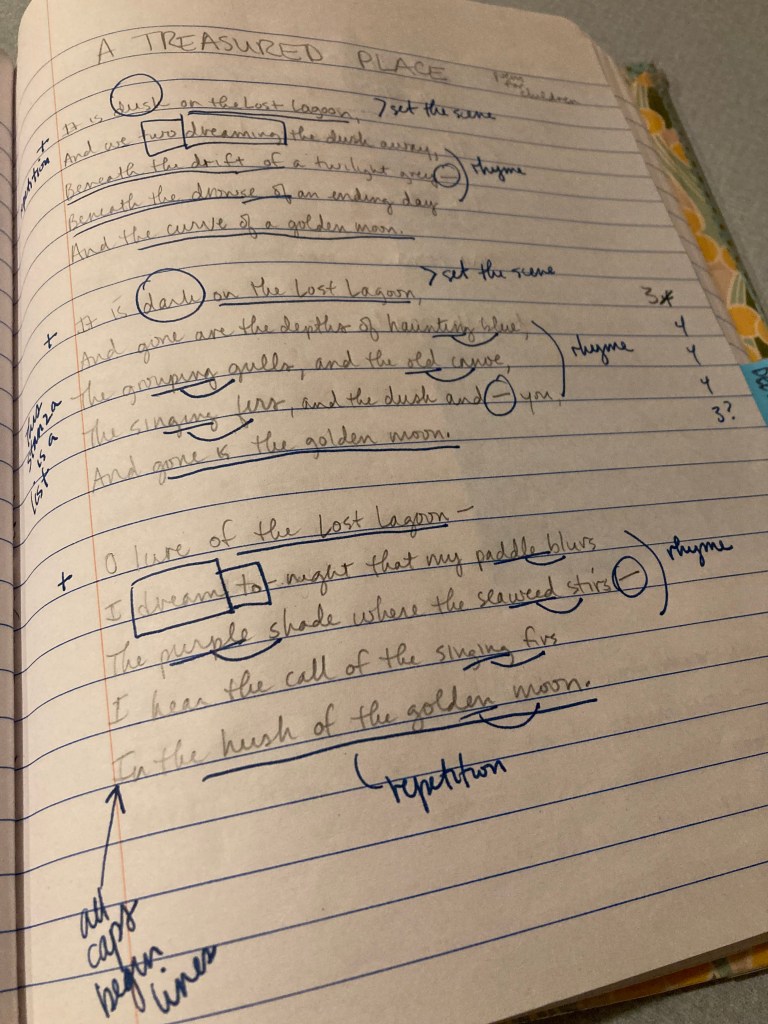 A TREASURED PLACE
children
It is dusk on the Lost Lagoon, > set the scene
And we two dreaming the dusk away,
+ repetition
Beneath the drift of a twilight grey — rhyme
Beneath the drowse of an ending day
And the curve of a golden moon.
> set the scene
+ It is dark on the Lost Lagoon, 3*
And gone are the depths of haunting blue, 4
The grouping gulls, and the old canoe, rhyme 4
The singing firs, and the dusk and — you, 4
And gone is the golden moon. 3?
this stanza is a list
+ O lure of the Lost Lagoon —
I dream to-night that my paddle blurs
The purple shade where the seaweed stirs — rhyme
I hear the call of the singing firs
In the hush of the golden moon.
repetition
all
caps
begin
lines